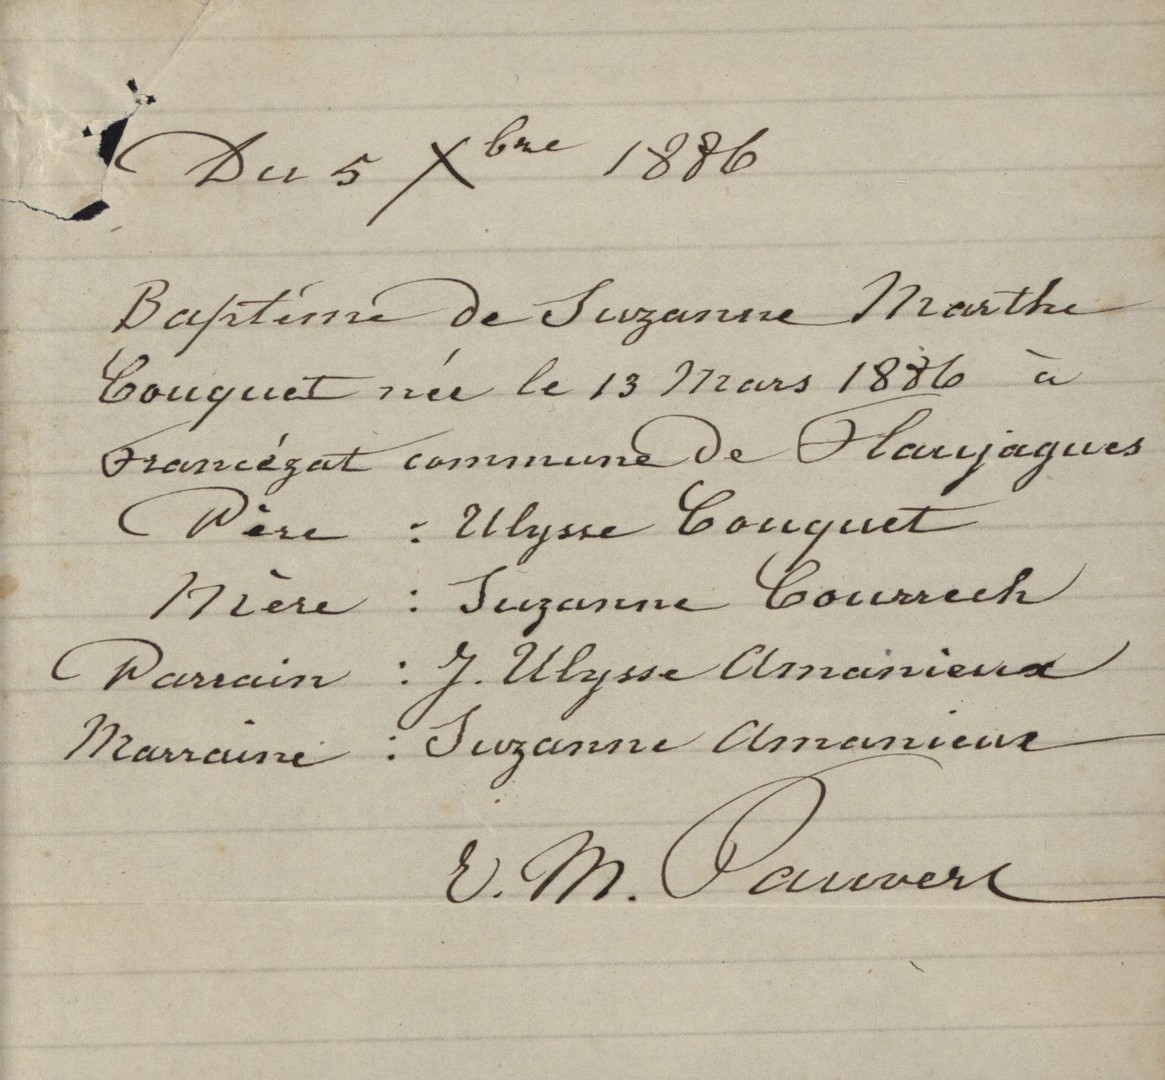 Du 5 Xbre 1886
Baptême de Suzanne Marthe
Couquet née le 13 Mars 1886 à
Franciégat commune de Flaujagues
Père : Ulysse Couquet
Mère : Suzanne Courrech
Parrain : J. Ulysse Amanieux
Marraine : Suzanne Amanieux
E. M. Pauvert